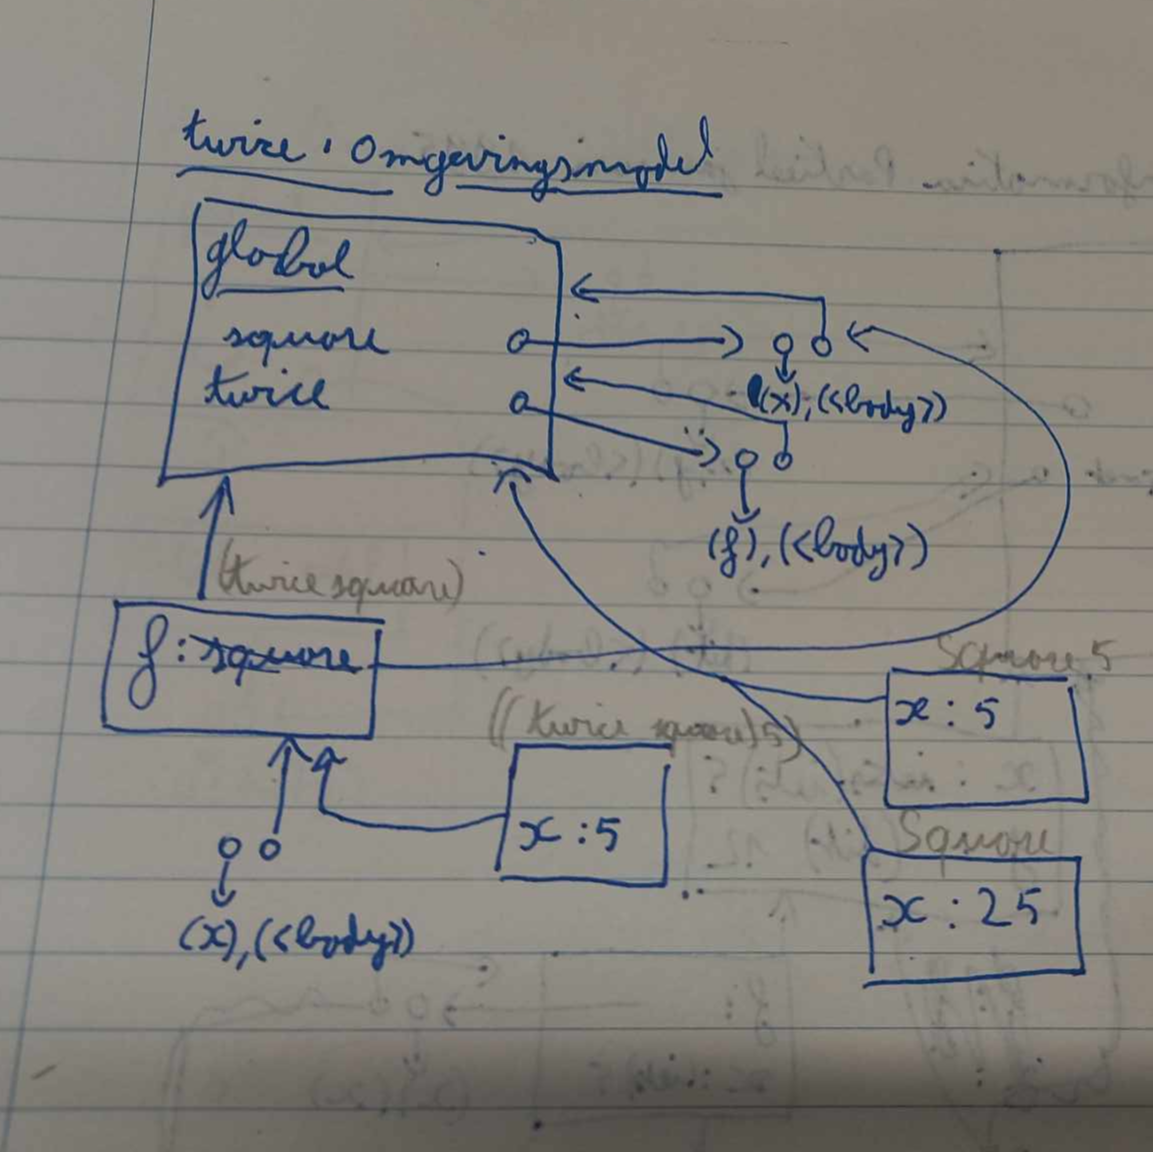 twice : Omgevingsmodel
global
square
twice
(x), (<body>)
(f), (<body>)
(twice square)
f : square
Square 5
x : 5
((twice square) 5)
x : 5
Square
x : 25
(x), (<body>)